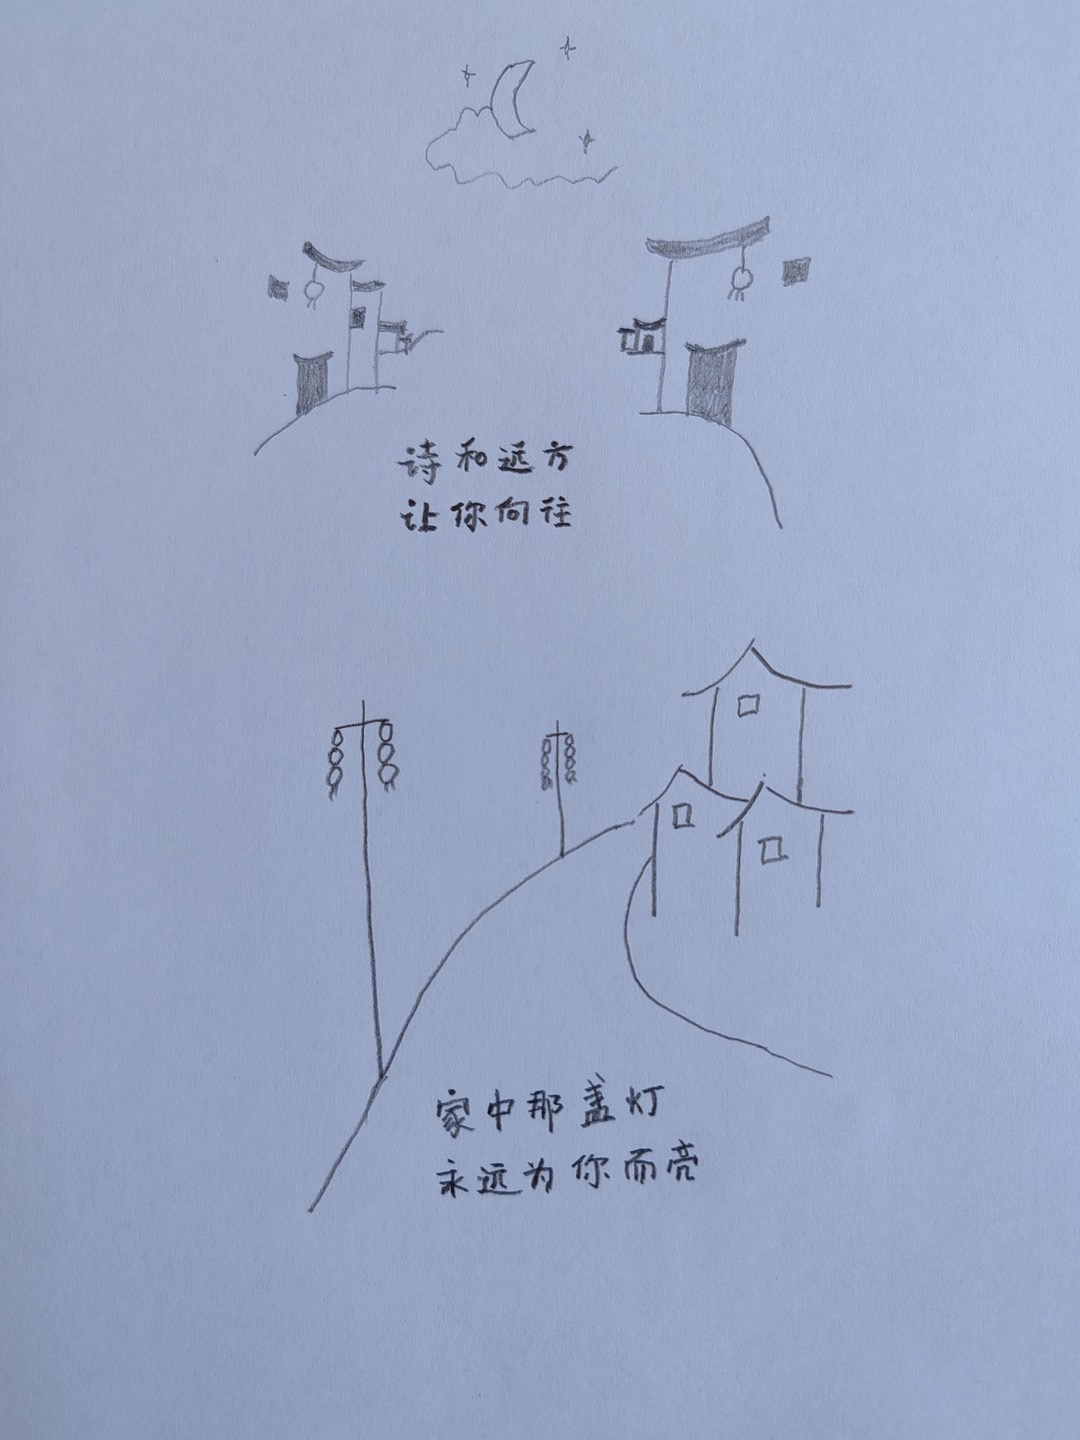 诗和远方
让你向往
家中那盏灯
永远为你而亮